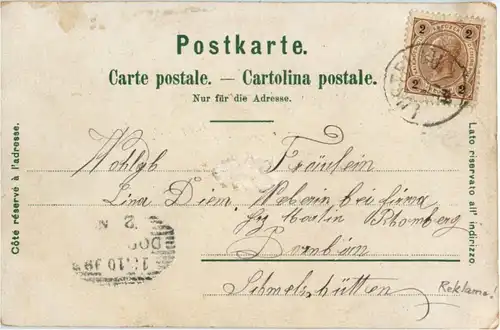 Postkarte.
Carte postale. — Cartolina postale.
Nur für die Adresse.
2 2
2 2
Côte réservé à l'adresse.
Lato riservato all' indirizzo.
Wohlgb Fräulein
Lina Diem, Weberin bei Firma
Martin Rhomberg
Dornbirn
Schmelzhütten
Reklame!
2 N
DOR
10 99